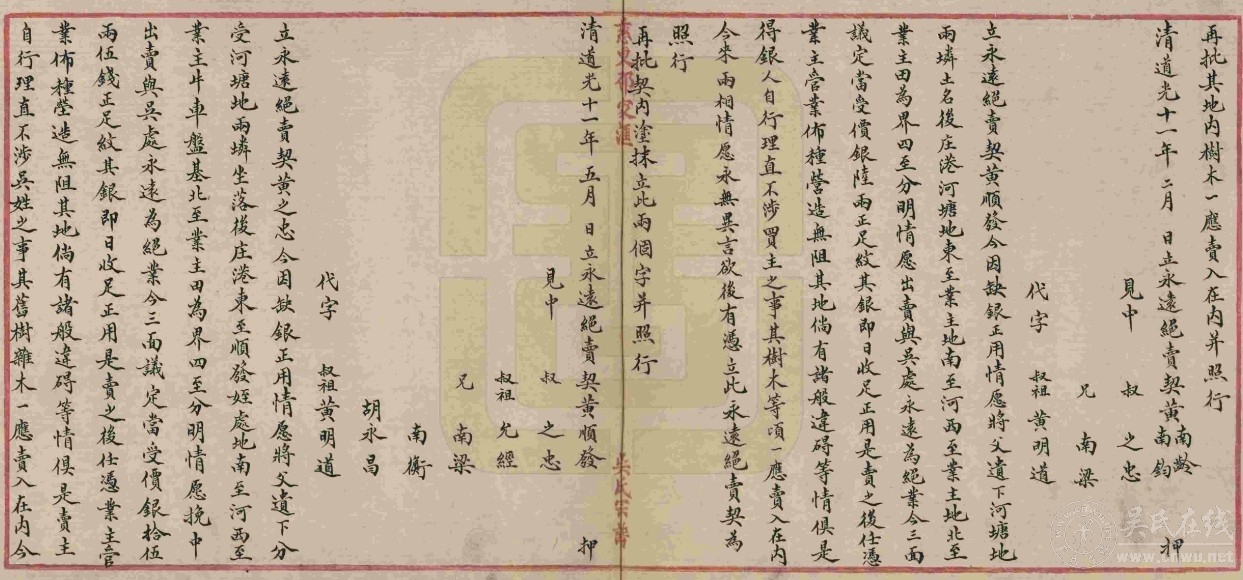 再批其地内樹木一應賣入在内并照行
清道光十一年二月　日立永遠絕賣契黃南齡　南鈞　押
見中　叔　之忠
兄　南梁
代字　叔祖黃明道
立永遠絕賣契黃順發今因缺銀正用情愿將父遺下河塘地
兩塊土名後庄港河塘地東至業主地南至河西至業主地北至
業主田為界四至分明情愿出賣與吳處永遠為絕業今三面
議定當受價銀陸兩正足紋其銀即日收足正用是賣之後任憑
業主管業佈種營造無阻其地倘有諸般違碍等情俱是
得銀人自行理直不涉買主之事其樹木等項一應賣入在内
今來兩相情愿永無異言欲後有憑立此永遠絕賣契為
照行
再批契内塗抹立此兩個字并照行
清道光十一年五月　日立永遠絕賣契黃順發　押
見中　叔　之忠
叔祖　允經
兄　南梁
南衡
胡永昌
代字　叔祖黃明道
立永遠絕賣契黃之忠今因缺銀正用情愿將父遺下分
受河塘地兩塊坐落後庄港東至順發姪處地南至河西至
業主牛車盤基北至業主田為界四至分明情愿挽中
出賣與吳處永遠為絕業今三面議定當受價銀拾伍
兩伍錢正足紋其銀即日收足正用是賣之後任憑業主管
業佈種營造無阻其地倘有諸般違碍等情俱是賣主
自行理直不涉吳姓之事其舊樹雜木一應賣入在内今
吳氏宗譜
吳氏在线
www.cnwu.net